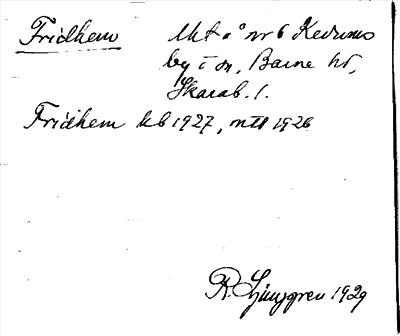 Fridhem Ukt å nr 6 Kedums
by i sn, Barne hd,
Skarab. l.
Fridhem kb 1927, mtl 1926
R. Ljunggren 1929